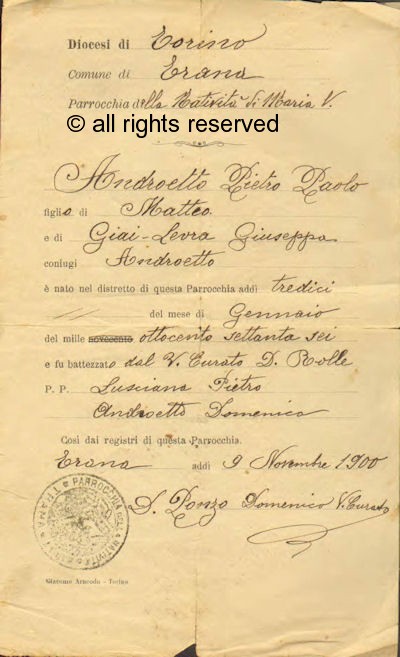 Diocesi di Torino
Comune di Trana
Parrocchia della Natività di Maria V.
© all rights reserved
Androetto Pietro Paolo
figlio di Matteo
e di Giai-Levra Giuseppa
coniugi Androetto
è nato nel distretto di questa Parrocchia addì tredici
del mese di Gennaio
del mille novecento ottocento settanta sei
e fu battezzato dal V. Curato D. Rolle
P. P. Lusciana Pietro
Androetto Domenica
Così dai registri di questa Parrocchia.
Trana addì 9 Novembre 1900
D. Ponzo Domenico V. Curato
PARROCCHIA DELLA NATIVITÀ
TRANA
Giacomo Arneodo - Torino